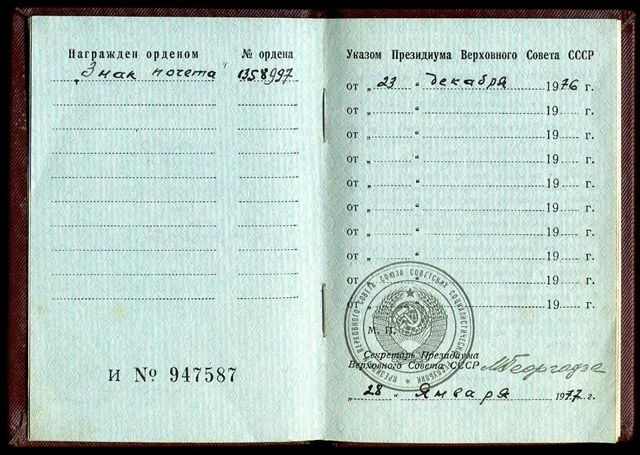 Награжден орденом № ордена
„Знак почета" 1358997
И № 947587
Указом Президиума Верховного Совета СССР
от „ 23 “ декабря 1976 г.
от „ “ 19 г.
от „ “ 19 г.
от „ “ 19 г.
от „ “ 19 г.
от „ “ 19 г.
от „ “ 19 г.
от „ “ 19 г.
от „ “ 19 г.
от „ “ 19 г.
ПРЕЗИДИУМ ВЕРХОВНОГО СОВЕТА СОЮЗА СОВЕТСКИХ СОЦИАЛИСТИЧЕСКИХ РЕСПУБЛИК
М. П.
Секретарь Президиума
Верховного Совета СССР МГеоргадзе
„ 28 “ Января 1977 г.